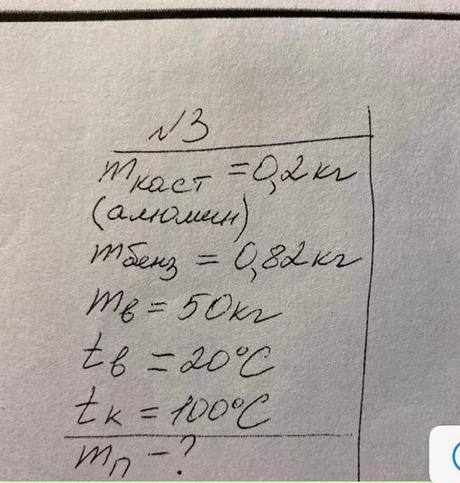 №3
mкаст = 0,2 кг
(алюмин)
mбенз = 0,82 кг
mв = 50 кг
tв = 20°C
tк = 100°C
mп - ?